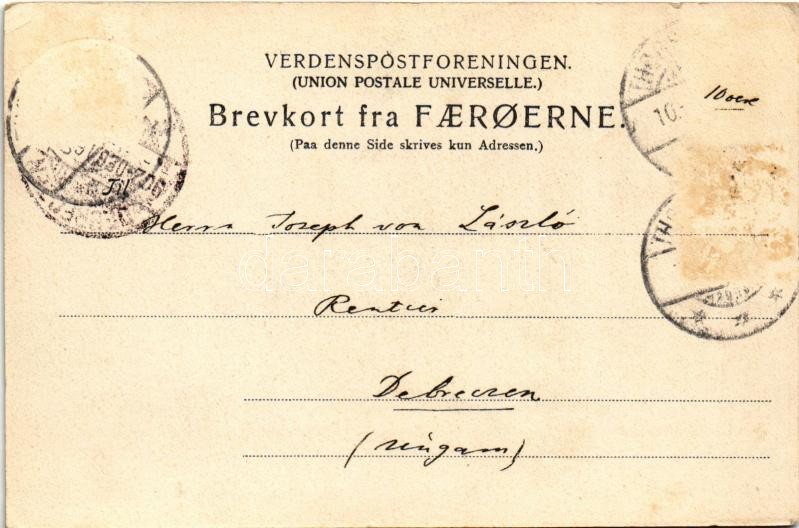 VERDENSPÖSTFORENINGEN.
(UNION POSTALE UNIVERSELLE.)
Brevkort fra FÆRØERNE.
(Paa denne Side skrives kun Adressen.)
10 oere
Herrn Joseph von László
Rentier
Debreczen
(Ungarn)
darabanth